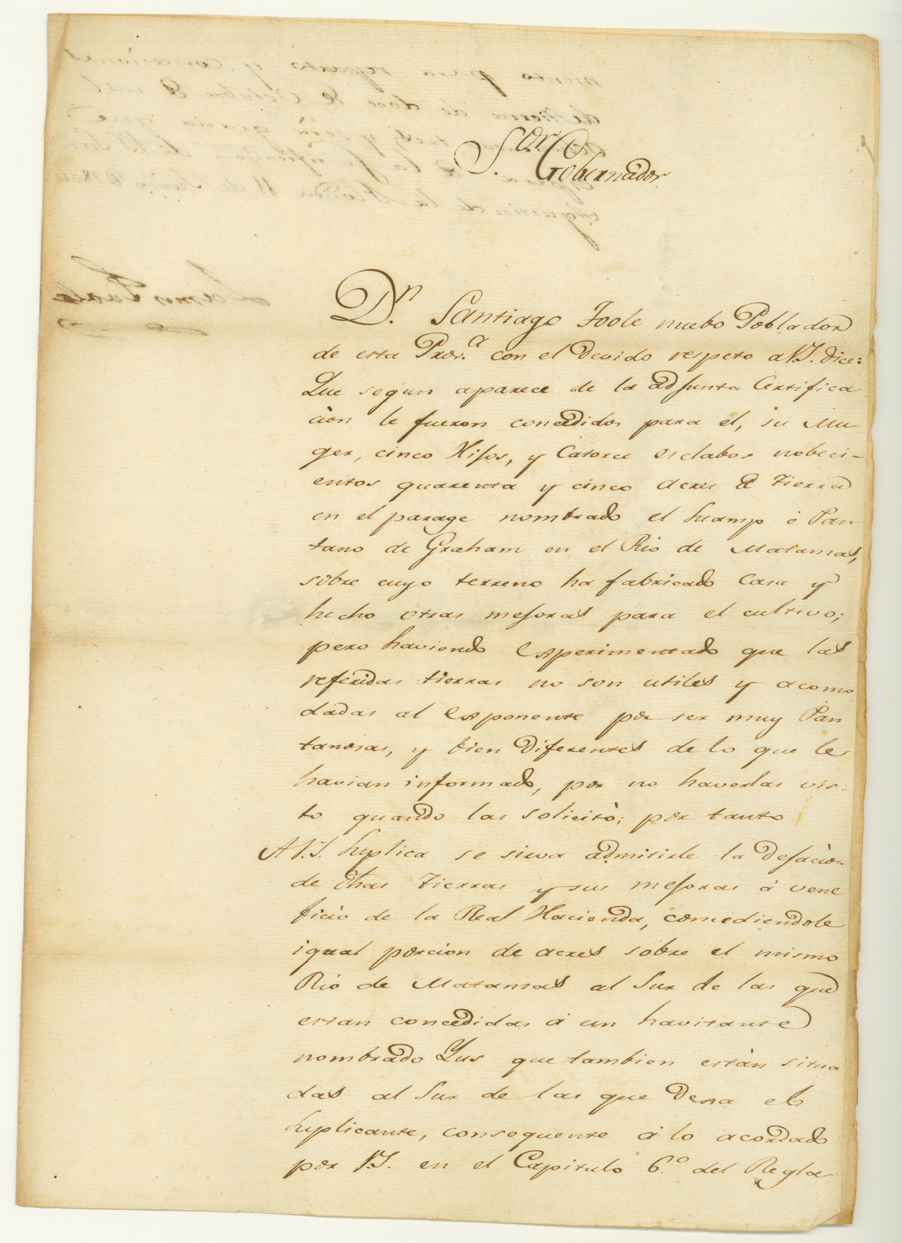 S.or Gobernador
D.n Santiago Toole nuebo Poblador
de esta Prov.a con el Devido respeto a V.S. dice:
Que segun aparece de la adjunta Certifica
ciòn le fueron concedidos para el, su Mu
ger, cinco Hijos, y Catorce esclabos nobeci-
entos quarenta y cinco acres de Tierra
en el parage nombrado el Suamp ò Pan
tano de Graham en el Rio de Matansas,
sobre cuyo terreno ha fabricado Casa y
hecho otras mejoras para el cultivo;
pero haviendo esperimentado que las
referidas tierras no son utiles y acomo
dadas al esponente por ser muy Pan
tanosas, y bien Diferentes de lo que le
havian informado, por no haverlas vis-
to quando las solicitò; por tanto
A V.S. Suplica se sirva admitirle la Dejaciòn
de Dhas Tierras y sus mejoras à vene
ficio de la Real Hacienda, concediendole
igual porcion de acres sobre el mismo
Rio de Matansas al Sur de las que
estan concedidas à un havitante
nombrado que tambien estàn situa
das al Sur de las que Dexa el
Suplicante, consequente à lo acordado
por V.S. en el Capitulo 6.o del Regla